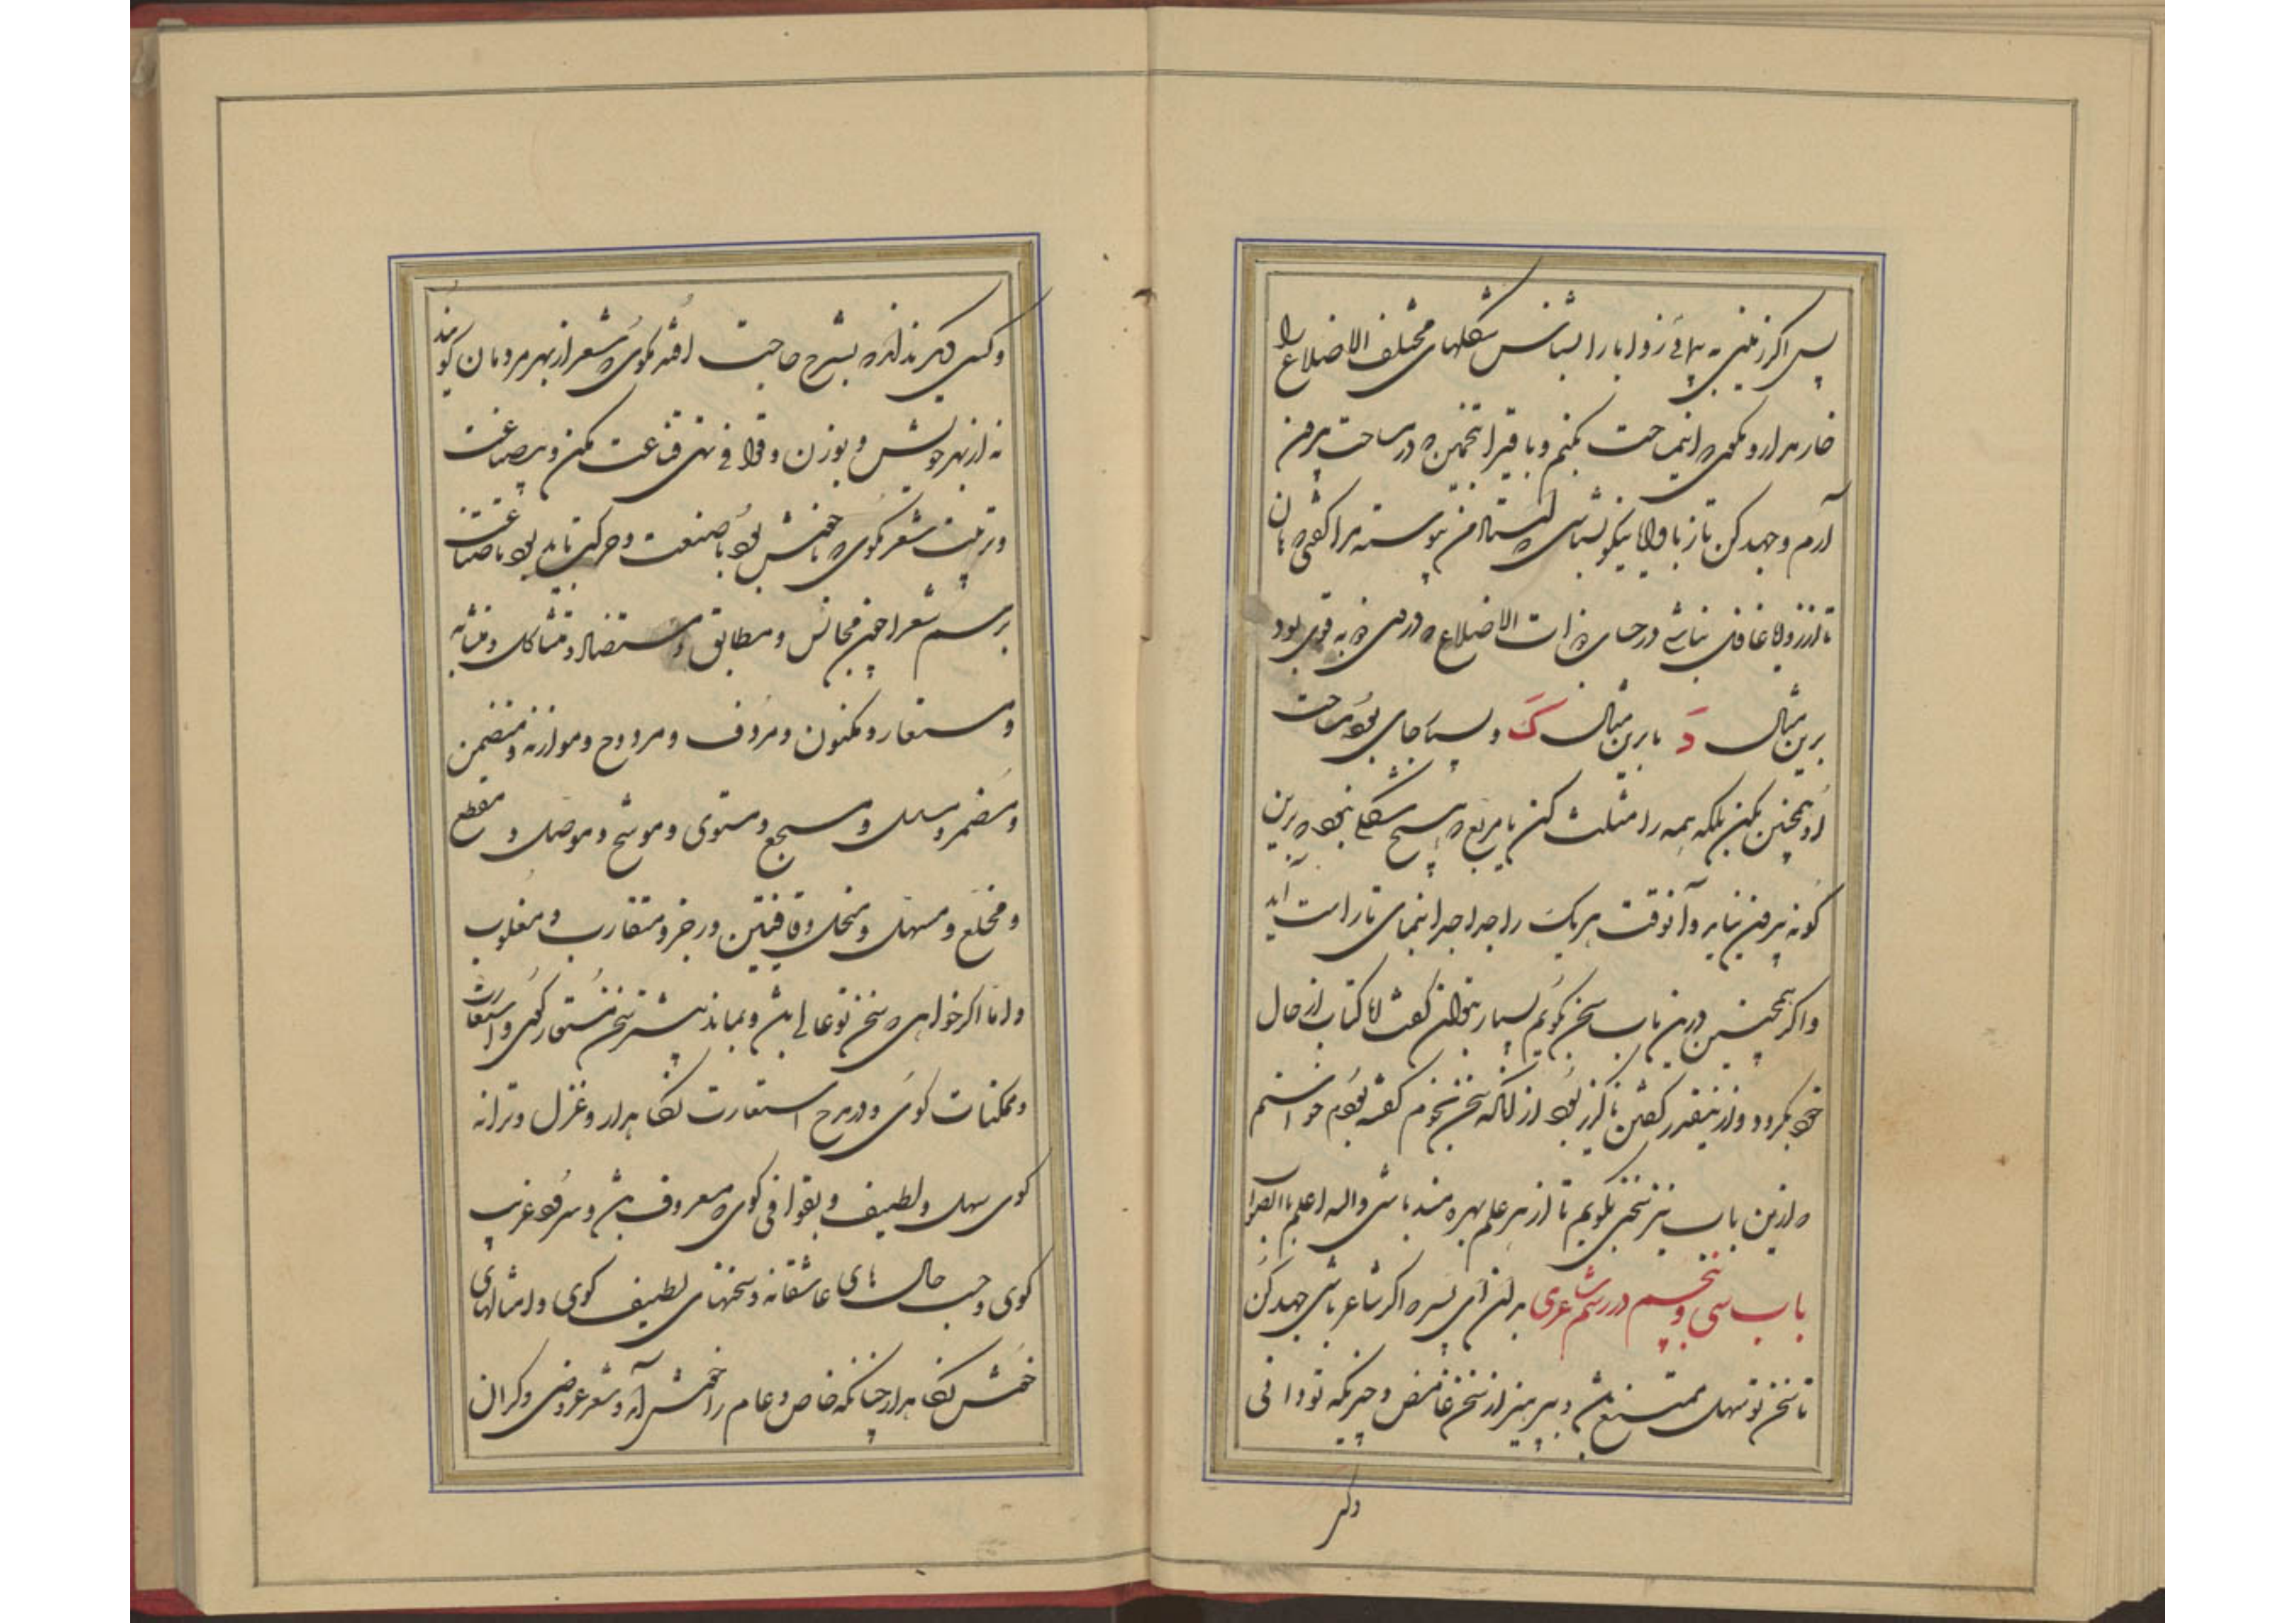 پس اگر زمینی به پیمائی زوایا را بشناس شکلهای مختلف الاضلاع را
خار مدار و مگوی که این مساحت بکنم و باقی را تخمین که در مساحت
آرم و جهد کن تا زوایا نیکو بشناسی که استاد من پیوسته مرا گفتی که هان
تا از زوایا غافل نباشی در حساب ذات الاضلاع که در من
برین مثال دَ یا برین مثال کَ و بسیار جای بود که مساحت
او همچنین مکن بلکه همه را مثلث کن یا مربع که هیچ شکلی نبود که برین
گونه بیرون نیاید و آنوقت هر یک را جدا جدا پیمای تا راست آید
و اگر همچنین درین باب سخن گویم بسیار بتوان گفت اما کتاب از حال
خود بگردد و ازینقدر گفتن ناگزیر بود از آنکه سخن نجوم گفته بودم خواستم
که ازین باب نیز سخنی بگویم تا از هر علم بهره مند باشی والله اعلم بالصواب
باب سی و پنجم در رسم شاعری بدان ای پسر که اگر شاعر باشی جهد کن
تا سخن تو سهل ممتنع باشد و بپرهیز از سخن غامض و چیزیکه تو دانی
و کسی دیگر نداند که بشرح حاجت افتد مگوی که شعر از بهر مردمان گویند
نه از بهر خویش و بوزن و قوافی تهی قناعت مکن و بیصناعت
و ترتیب شعر مگوی که ناخوش بود با صنعت و حرکت باید بود با صناعت
برسم شعرا چون مجانس و مطابق و متضاد و متشاکل و متشابه
و مستعار و مکنون و مردف و مزدوج و موازنه و متضمن
و مضمر و مسلسل و مسجع و مستوی و موشح و موصل و مقطع
و مخلع و مسهل و منحل و قافیتین و رجز و متقارب و مقلوب
و اما اگر خواهی که سخن تو عالی باشد و بماند بیشتر سخن مستعار گوی و استعارت
و ممکنات گوی و در مدح استعارت نگاه دار و غزل و ترانه
گوی سهل و لطیف و بقوافی گوی که معروف باشد و سرد و غریب
گوی و حسب حال های عاشقانه و سخنهای لطیف گوی و امثالهای
خوش نگاه دار چنانکه خاص و عام را خوش آید و شعر عروضی و گران
دکسی